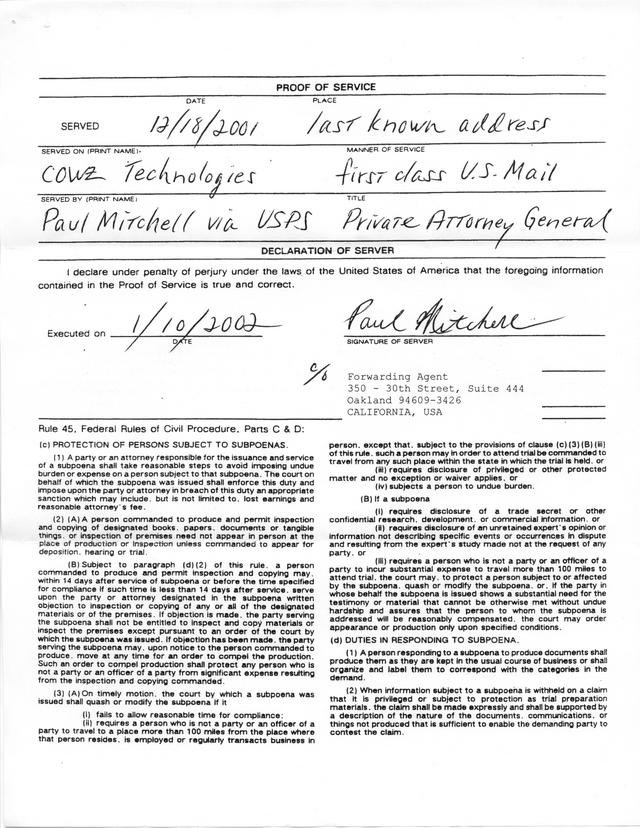 PROOF OF SERVICE
DATE
PLACE
SERVED 12/18/2001 last known address
SERVED ON (PRINT NAME)
MANNER OF SERVICE
COWZ Technologies first class U.S. Mail
SERVED BY (PRINT NAME)
TITLE
Paul Mitchell via USPS Private Attorney General
DECLARATION OF SERVER
I declare under penalty of perjury under the laws of the United States of America that the foregoing information
contained in the Proof of Service is true and correct.
Executed on 1/10/2002
DATE
Paul Mitchell
SIGNATURE OF SERVER
c/o
Forwarding Agent
350 - 30th Street, Suite 444
Oakland 94609-3426
CALIFORNIA, USA
Rule 45, Federal Rules of Civil Procedure, Parts C & D:
(c) PROTECTION OF PERSONS SUBJECT TO SUBPOENAS.
(1) A party or an attorney responsible for the issuance and service
of a subpoena shall take reasonable steps to avoid imposing undue
burden or expense on a person subject to that subpoena. The court on
behalf of which the subpoena was issued shall enforce this duty and
impose upon the party or attorney in breach of this duty an appropriate
sanction which may include, but is not limited to, lost earnings and
reasonable attorney's fee.
(2) (A) A person commanded to produce and permit inspection
and copying of designated books, papers, documents or tangible
things, or inspection of premises need not appear in person at the
place of production or inspection unless commanded to appear for
deposition, hearing or trial.
(B) Subject to paragraph (d) (2) of this rule, a person
commanded to produce and permit inspection and copying may,
within 14 days after service of subpoena or before the time specified
for compliance if such time is less than 14 days after service, serve
upon the party or attorney designated in the subpoena written
objection to inspection or copying of any or all of the designated
materials or of the premises. If objection is made, the party serving
the subpoena shall not be entitled to inspect and copy materials or
inspect the premises except pursuant to an order of the court by
which the subpoena was issued. If objection has been made, the party
serving the subpoena may, upon notice to the person commanded to
produce, move at any time for an order to compel the production.
Such an order to compel production shall protect any person who is
not a party or an officer of a party from significant expense resulting
from the inspection and copying commanded.
(3) (A) On timely motion, the court by which a subpoena was
issued shall quash or modify the subpoena if it
(i) fails to allow reasonable time for compliance;
(ii) requires a person who is not a party or an officer of a
party to travel to a place more than 100 miles from the place where
that person resides, is employed or regularly transacts business in
person, except that, subject to the provisions of clause (c) (3) (B) (iii)
of this rule, such a person may in order to attend trial be commanded to
travel from any such place within the state in which the trial is held, or
(iii) requires disclosure of privileged or other protected
matter and no exception or waiver applies, or
(iv) subjects a person to undue burden.
(B) If a subpoena
(i) requires disclosure of a trade secret or other
confidential research, development, or commercial information, or
(ii) requires disclosure of an unretained expert's opinion or
information not describing specific events or occurrences in dispute
and resulting from the expert's study made not at the request of any
party, or
(iii) requires a person who is not a party or an officer of a
party to incur substantial expense to travel more than 100 miles to
attend trial, the court may, to protect a person subject to or affected
by the subpoena, quash or modify the subpoena, or, if the party in
whose behalf the subpoena is issued shows a substantial need for the
testimony or material that cannot be otherwise met without undue
hardship and assures that the person to whom the subpoena is
addressed will be reasonably compensated, the court may order
appearance or production only upon specified conditions.
(d) DUTIES IN RESPONDING TO SUBPOENA.
(1) A person responding to a subpoena to produce documents shall
produce them as they are kept in the usual course of business or shall
organize and label them to correspond with the categories in the
demand.
(2) When information subject to a subpoena is withheld on a claim
that it is privileged or subject to protection as trial preparation
materials, the claim shall be made expressly and shall be supported by
a description of the nature of the documents, communications, or
things not produced that is sufficient to enable the demanding party to
contest the claim.